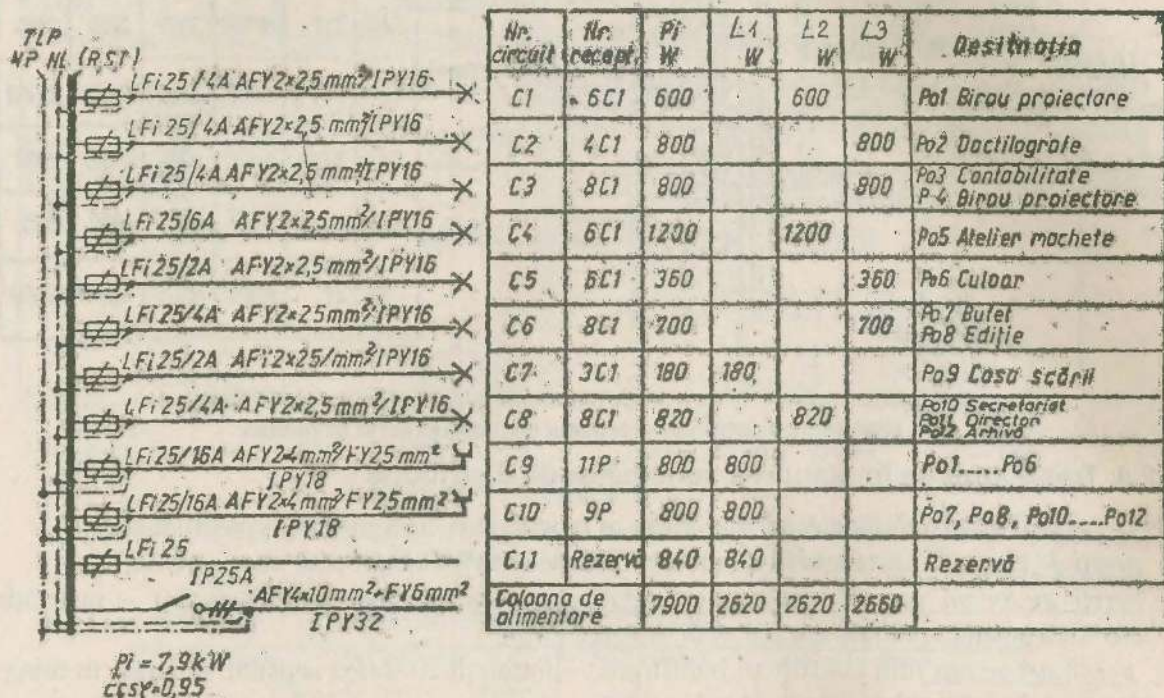 TLP
NP NL (RST)
LFi 25/4A AFY2×2,5 mm²/IPY16
LFi 25/4A AFY2×2,5 mm²/IPY16
LFi 25/4A AFY2×2,5 mm²/IPY16
LFi 25/6A AFY2×2,5mm²/IPY16
LFi 25/2A AFY2×2,5mm²/IPY16
LFi 25/4A AFY2×25mm²/IPY16
LFi 25/2A AFY2×25/mm²/IPY16
LFi 25/4A AFY2×2,5mm²/IPY16
LFi 25/16A AFY2×4mm²/FY25mm²
IPY18
LFi25/16A AFY2×4mm²/FY25mm²
IPY18
LFi 25
IP25A
AFY4×10mm²+FY6mm²
IPY32
Pi = 7,9kW
cosφ=0,95
Nr. circuit Nr. recept. Pi W L1 W L2 W L3 W Desitnația
C1 6C1 600 600 Po1 Birou proiectare
C2 4C1 800 800 Po2 Dactilografe
C3 8C1 800 800 Po3 Contabilitate
P.4 Birou proiectare
C4 6C1 1200 1200 Po5 Atelier machete
C5 6C1 360 360 Po6 Culoar
C6 8C1 700 700 Po7 Bufet
Po8 Ediție
C7 3C1 180 180 Po9 Casa scării
C8 8C1 820 820 Po10 Secretariat
Po11 Director
Po12 Arhivă
C9 11P 800 800 Po1.....Po6
C10 9P 800 800 Po7, Po8, Po10....Po12
C11 Rezervă 840 840 Rezervă
Coloana de alimentare 7900 2620 2620 2660